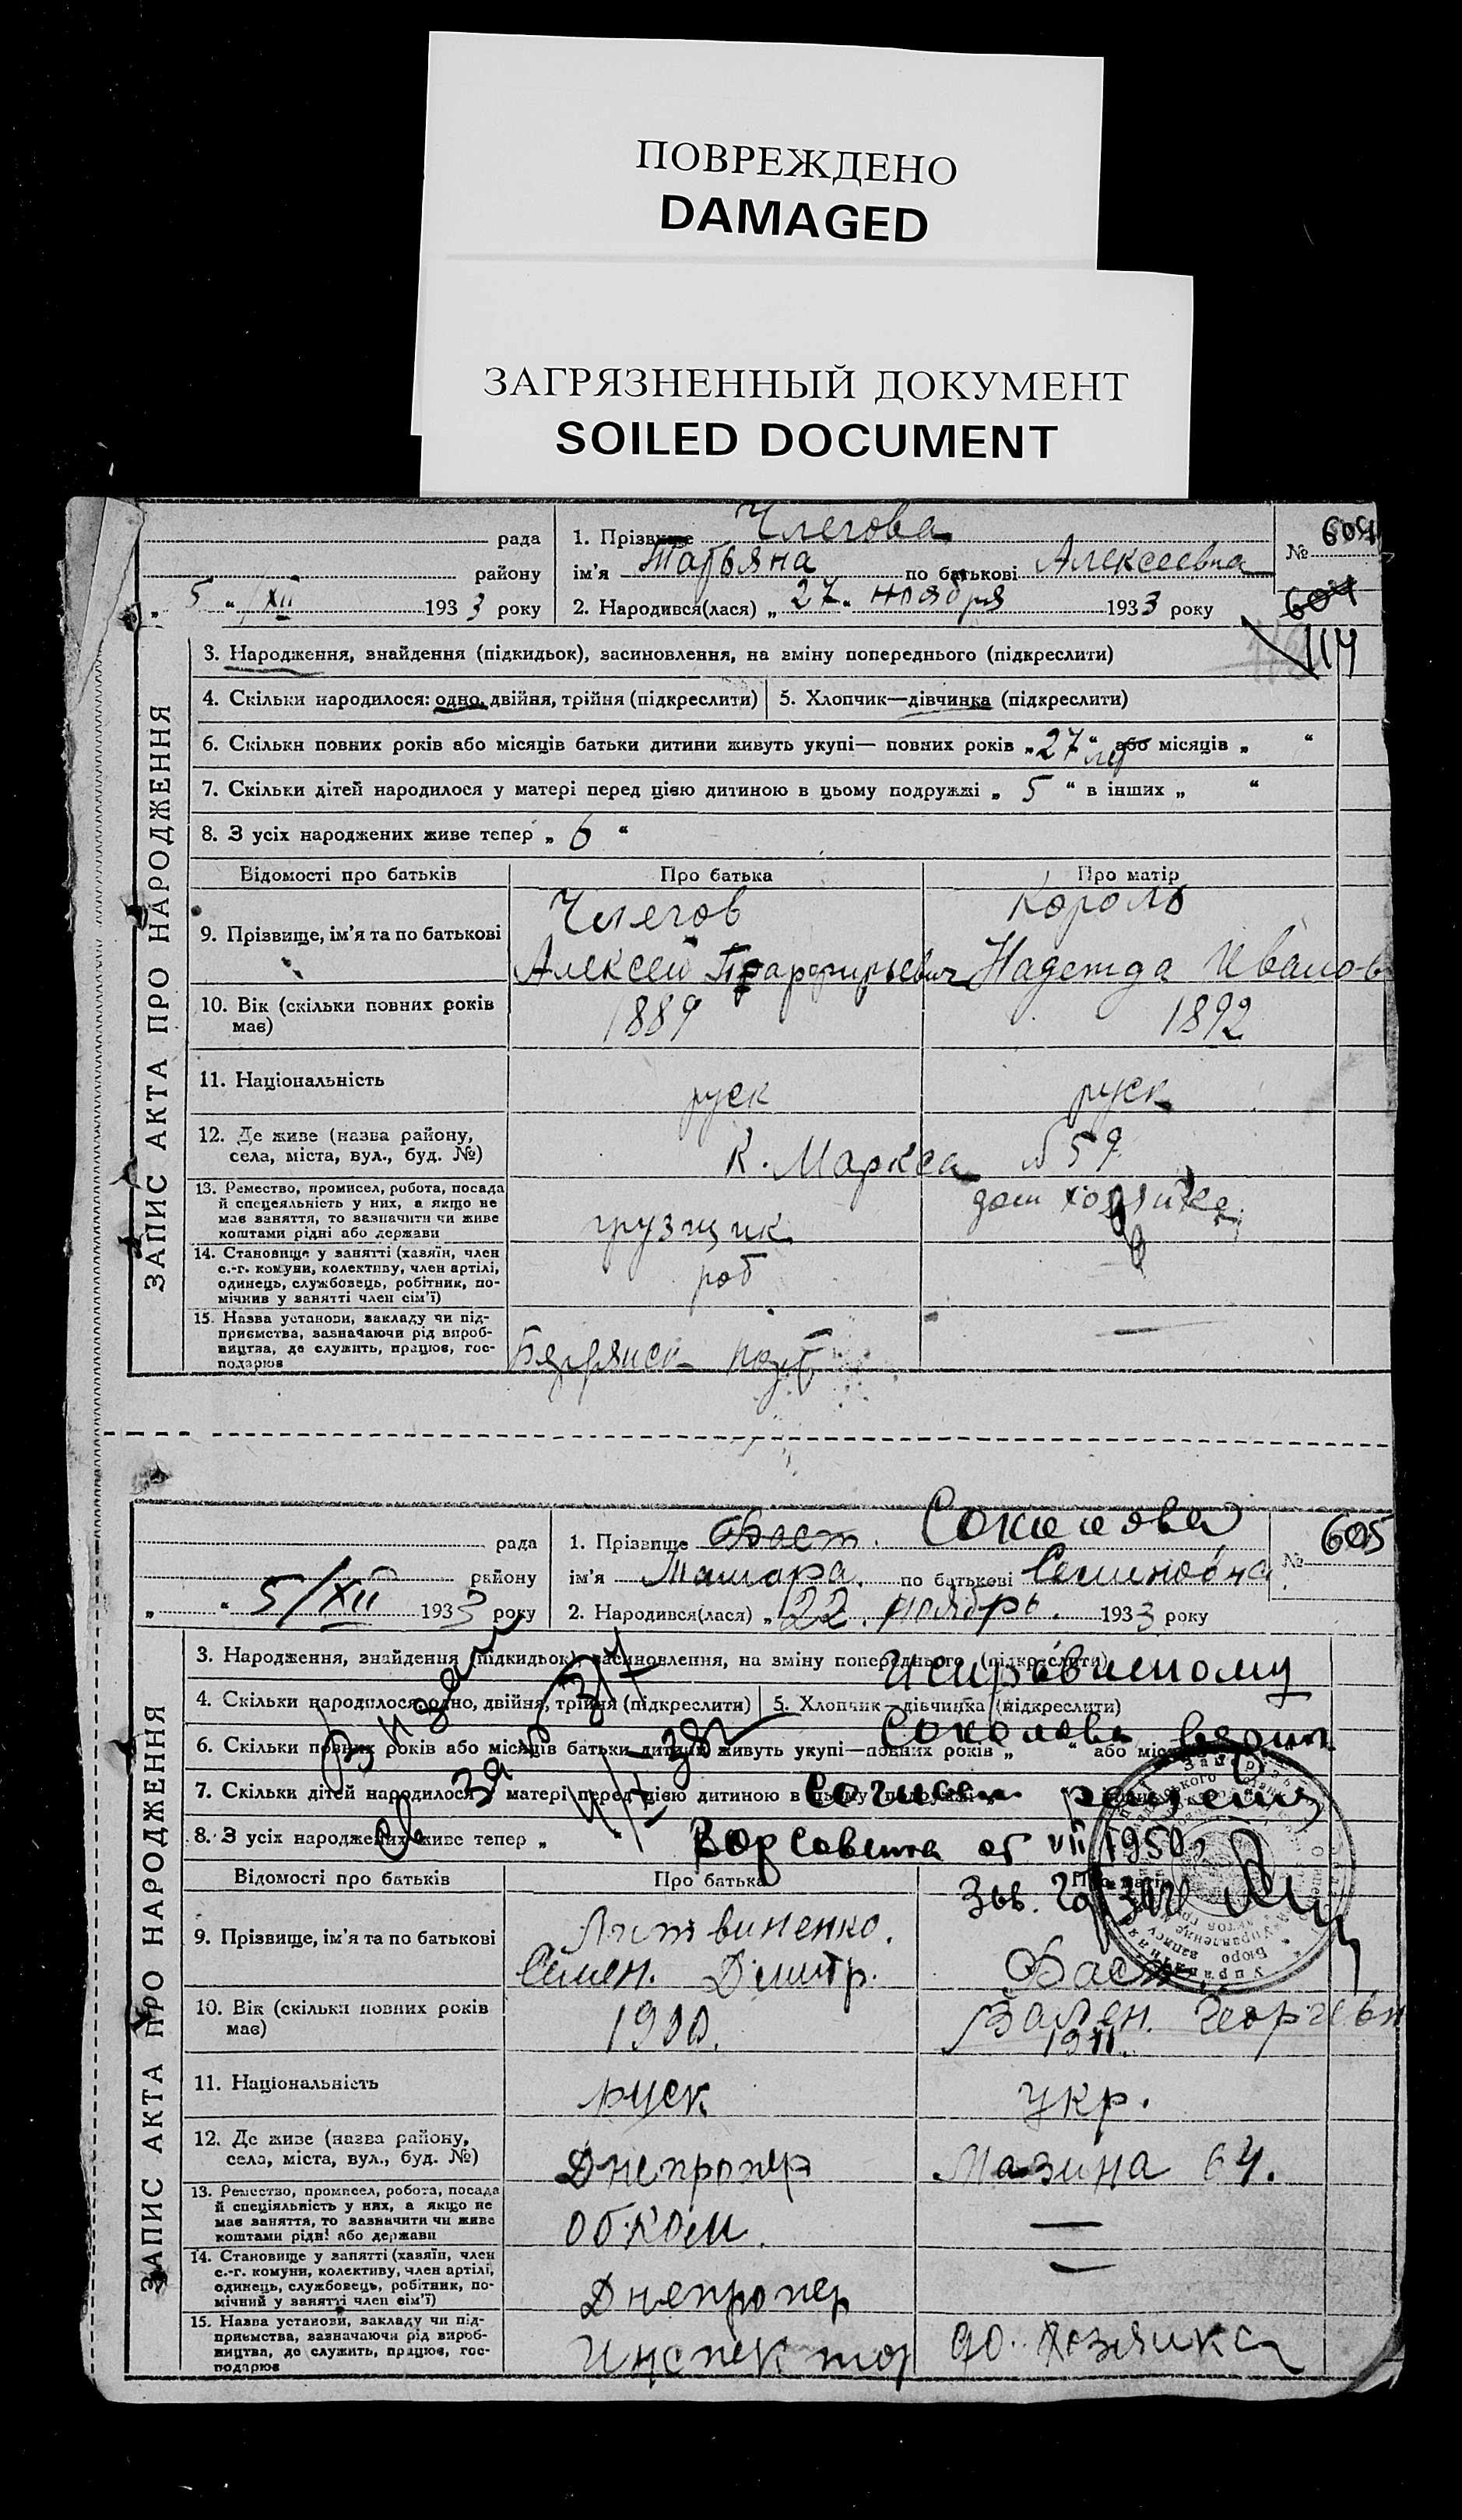 ПОВРЕЖДЕНО
DAMAGED
ЗАГРЯЗНЕННЫЙ ДОКУМЕНТ
SOILED DOCUMENT
рада
району
5 " XII 1933 року
1. Прізвище Члегова
ім'я Татьяна по батькові Алексеевна
2. Народився(лася) „ 27 " ноября 1933 року
№ 604
604
114
ЗАПИС АКТА ПРО НАРОДЖЕННЯ
3. Народження, знайдення (підкидьок), засиновлення, на зміну попереднього (підкреслити)
4. Скільки народилося: одно, двійня, трійня (підкреслити) 5. Хлопчик—дівчинка (підкреслити)
6. Скільки повних років або місяців батьки дитини живуть укупі— повних років „ 27 " лет або місяців „ "
7. Скільки дітей народилося у матері перед цією дитиною в цьому подружжі „ 5 " в інших „ "
8. З усіх народжених живе тепер „ 6 "
Відомості про батьків Про батька Про матір
9. Прізвище, ім'я та по батькові
Члегов Король
Алексей Надежда Иванов
10. Вік (скільки повних років має) 1889 1892
11. Національність руск руск
12. Де живе (назва району, села, міста, вул., буд. №) К. Маркса № 59
13. Ремество, промисел, робота, посада й спеціяльність у них, а якщо не має заняття, то зазначити чи живе коштами рідні або держави
грузщик дом хозяйка
14. Становище у занятті (хазяїн, член с.-г. комуни, колективу, член артілі, одинець, службовець, робітник, помічнив у занятті член сім'ї)
роб
15. Назва установи, закладу чи підприємства, зазначаючи рід виробництва, де служить, працює, господарює
Бердянск порт
рада
району
„ " 5/XII 1933 року
1. Прізвище Баст. Соколова
ім'я Тамара по батькові Семеновна
2. Народився(лася) „ 22. ноябрь. 1933 року
№ 605
ЗАПИС АКТА ПРО НАРОДЖЕННЯ
3. Народження, знайдення (підкидьок), засиновлення, на зміну попереднього (підкреслити)
Исправленому
4. Скільки народилося: одно, двійня, трійня (підкреслити) 5. Хлопчик—дівчинка (підкреслити)
Соколова верит
6. Скільки повних років або місяців батьки дитини живуть укупі—повних років „ " або міс
7. Скільки дітей народилося у матері перед цією дитиною в цьому
8. З усіх народжених живе тепер „
Горсовета от VII 1950
Відомості про батьків Про батька
Зав. Го
9. Прізвище, ім'я та по батькові
Литвиненко.
Семен. Дмитр. Баст
Вален. Георгевн
10. Вік (скільки повних років має) 1900. 1911.
11. Національність руск укр.
12. Де живе (назва району, села, міста, вул., буд. №) Днепропер Мазина 64.
13. Ремество, промисел, робота, посада й спеціяльність у них, а якщо не має заняття, то зазначити чи живе коштами рідні або держави
обком. —
14. Становище у занятті (хазяїн, член с.-г. комуни, колективу, член артілі, одинець, службовець, робітник, помічний у занятті член сім'ї)
Днепропер —
15. Назва установи, закладу чи підприємства, зазначаючи рід виробництва, де служить, працює, господарює
Инспектор до. хозяйка